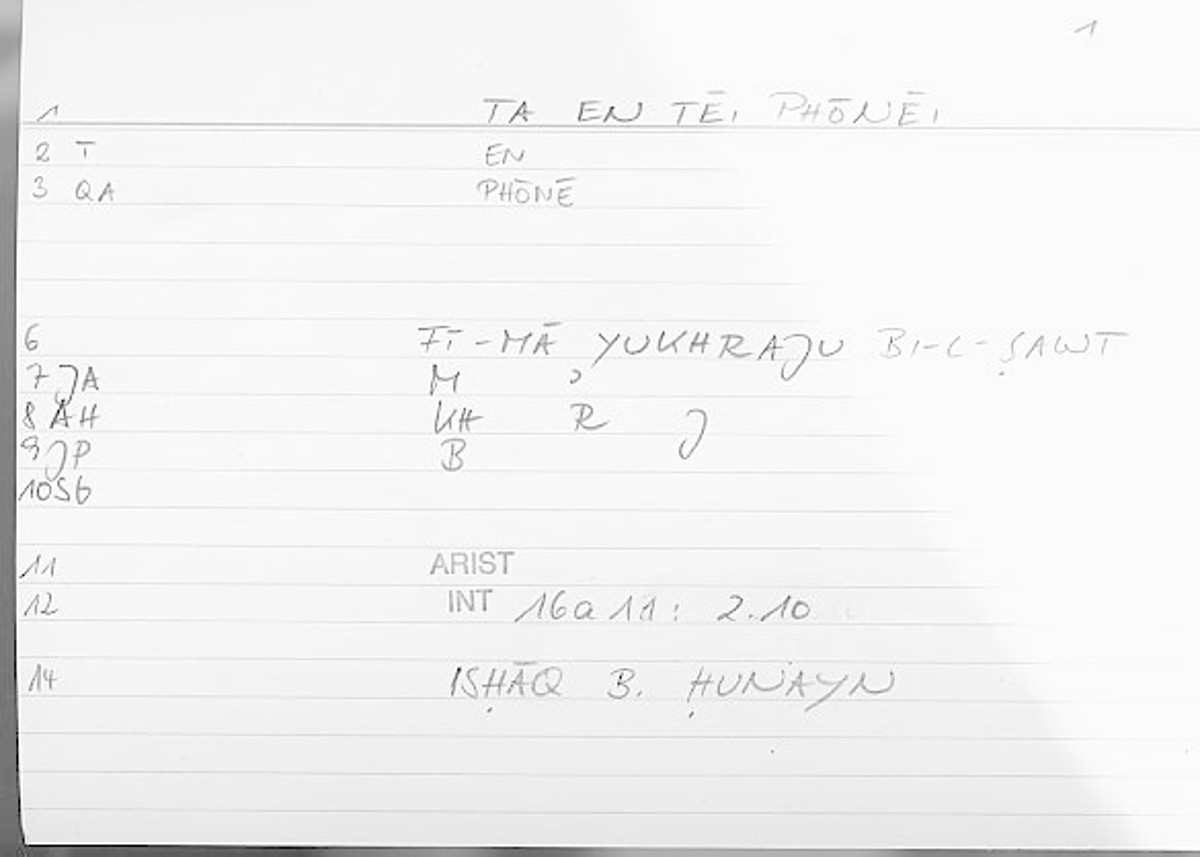 1
1 TA EN TĒI PHŌNĒI
2 T EN
3 QA PHŌNĒ
6 FĪ-MĀ YUKHRAJU BI-L-ṢAWT
7 JA M ʾ
8 AH KH R J
9 JP B
10 S6
11 ARIST
12 INT 16a11: 2.10
14 ISḤĀQ B. ḤUNAYN